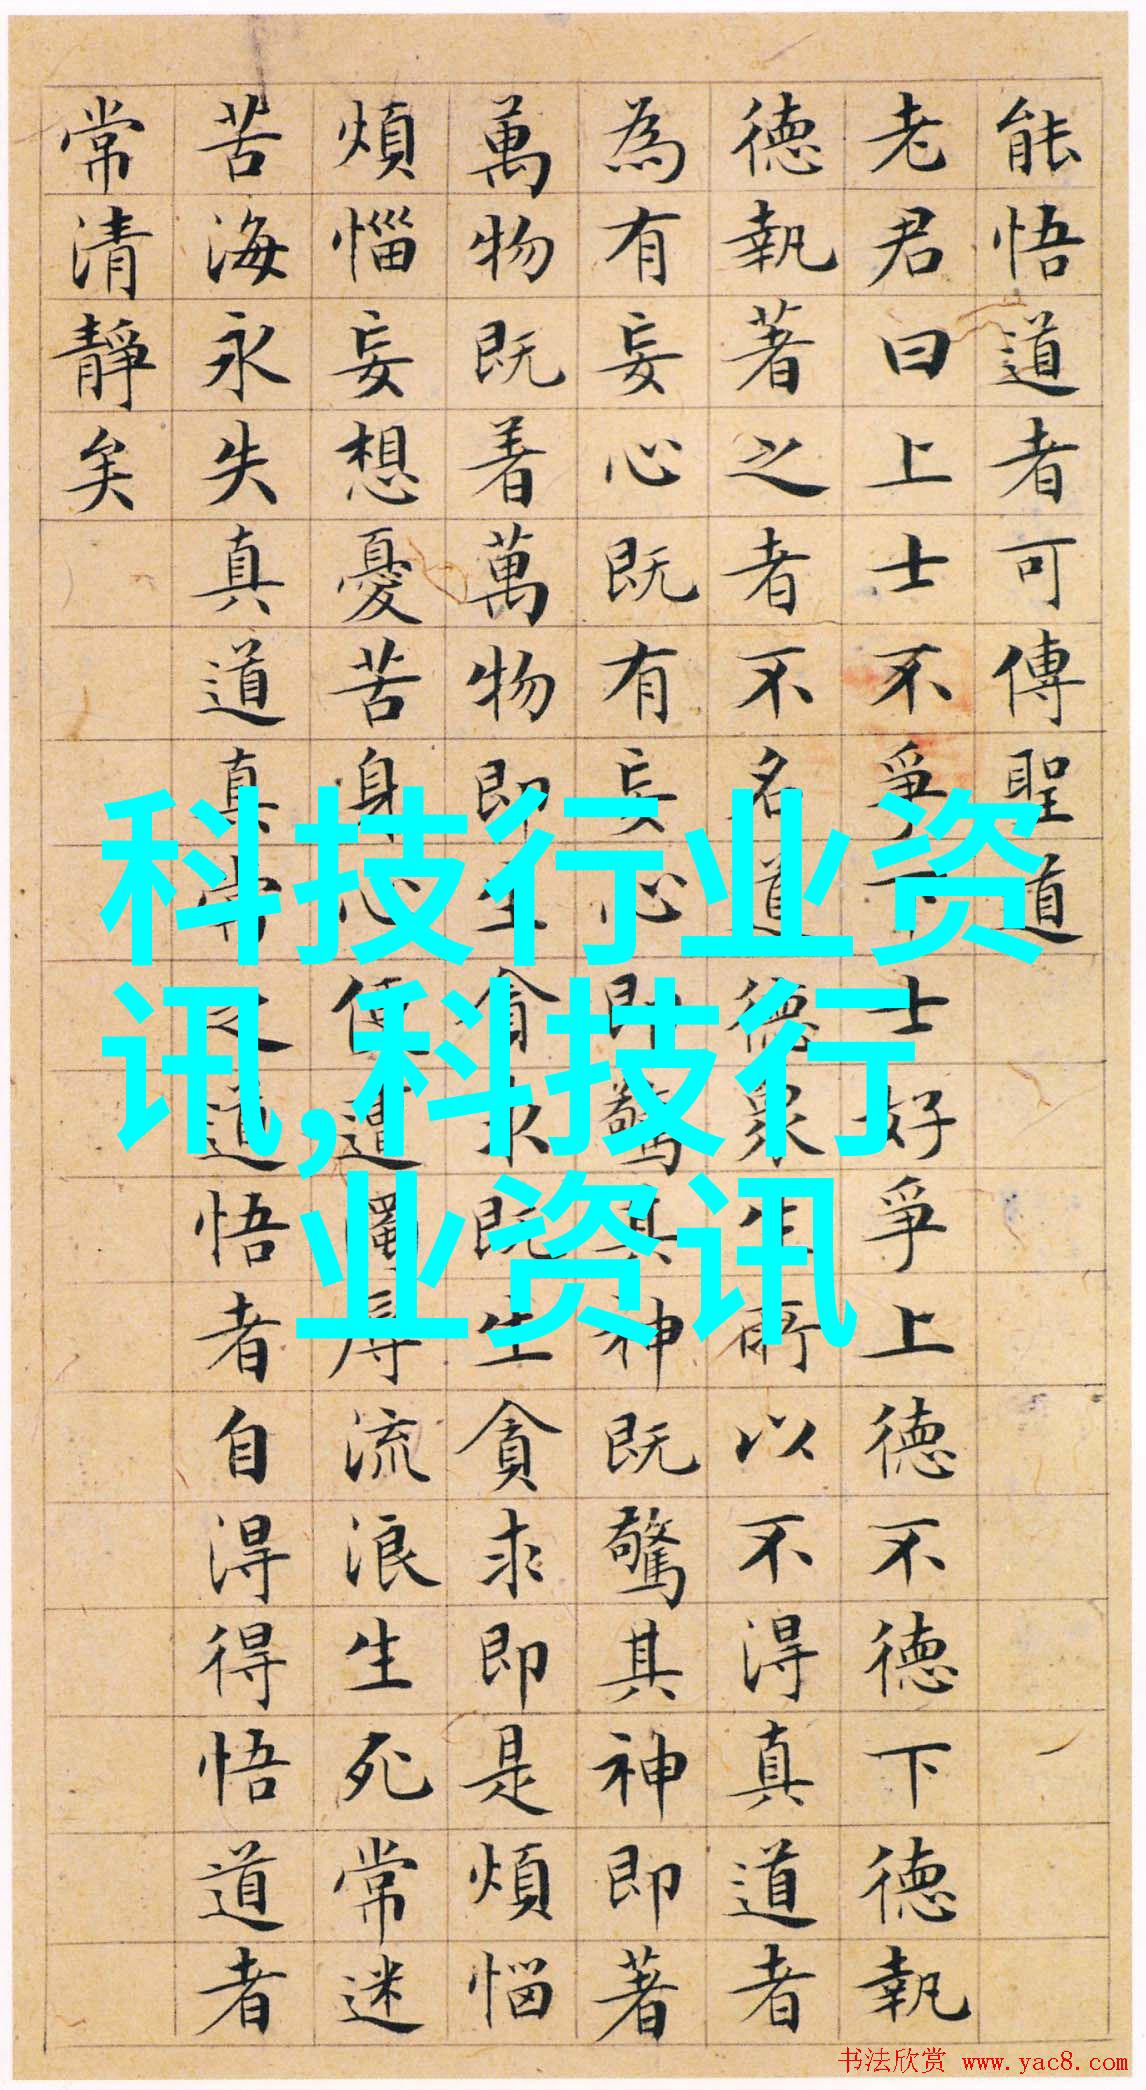 能悟道者可傳聖道
老君曰上士不爭下士好爭上德不德下德執
德執著之者不名道德眾生所以不得真道者
為有妄心既有妄心即驚其神既驚其神即著
萬物既着萬物即生貪求既生貪求即是煩惱
煩惱妄想憂苦身心便遭濁辱流浪生死常迷
苦海永失真道真常之道悟者自得得悟道者
常清靜矣
科技行业资
讯,科技行
业资讯
书法欣赏 www.yac8.com